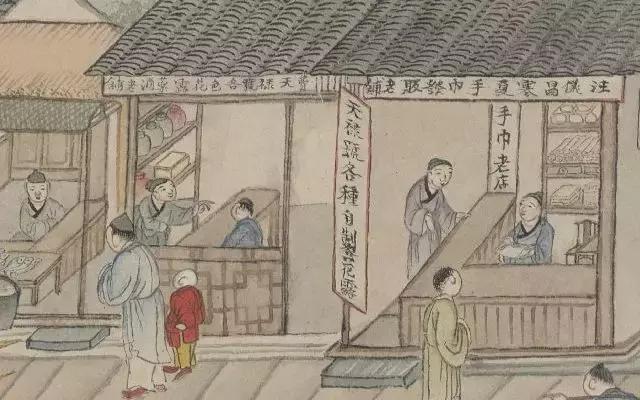 昌手巾發販老舖
手巾老店
天祿號各種自製花露
天祿號各色花露蒸酒老舖